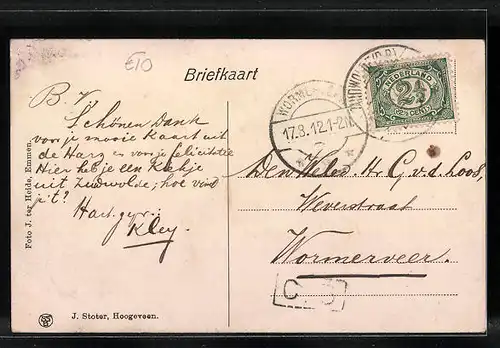 €10
Briefkaart
B. V.
Schönen Dank
voor je mooie kaart uit
de Harz en voor je felicitatie
Hier heb je een kiekje
uit Zuidwolde; hoe vind
je't?
Hart. gr.
Kley.
WORMERVEER
17.8.12.1-2N
NEDERLAND
2½
CENT
Den Heer Hr G. v. d. Loos,
Weverstraat
Wormerveer.
Foto J. ter Heide, Emmen.
J. Stoter, Hoogeveen.